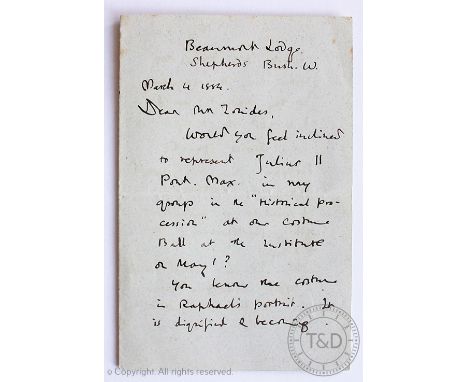 Beaumont Lodge.
Shepherds Bush. W.
March 4 1884.
Dear Mr Ionides,
Would you feel inclined
to represent Julius II
Pont. Max. in my
group in the "Historical pro-
cession" at our Costume
Ball at the Institute
on May 1?
You know the costume
in Raphael's portrait. It
is dignified & becoming.
T&D
© Copyright. All rights reserved.